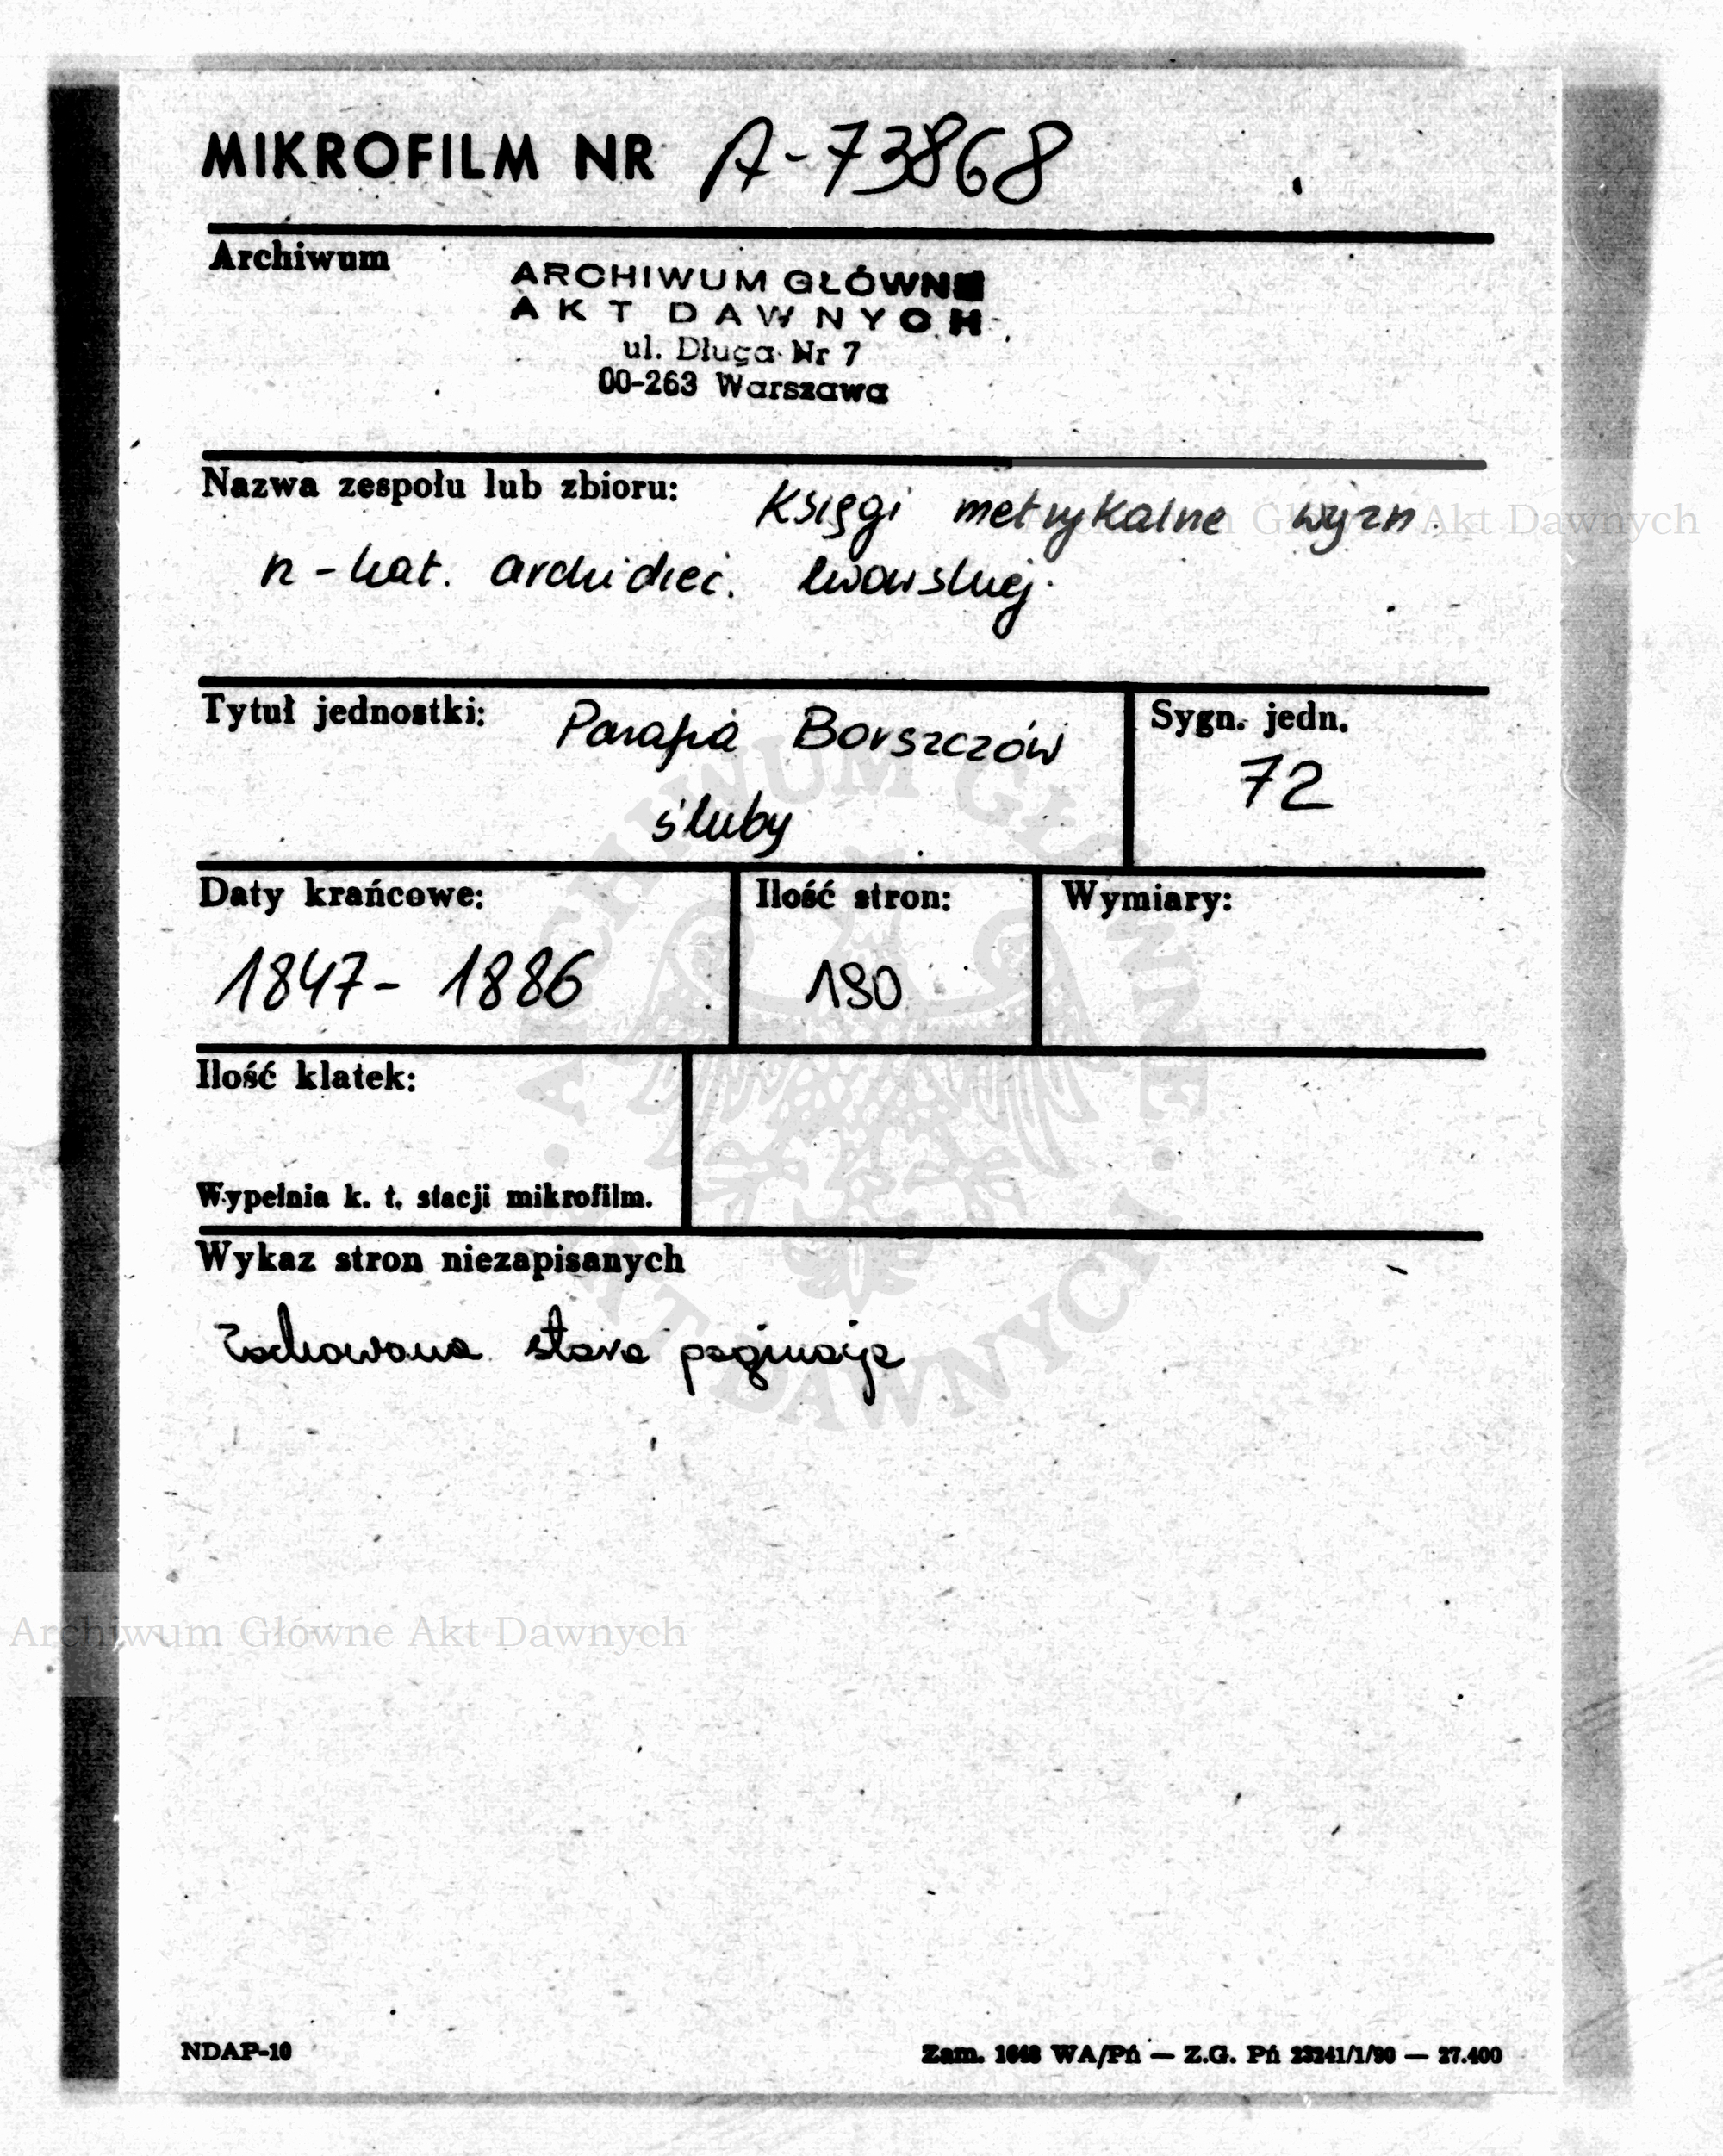 MIKROFILM NR A-73868
Archiwum
ARCHIWUM GŁÓWNE
AKT DAWNYCH
ul. Długa Nr 7
00-263 Warszawa
Nazwa zespołu lub zbioru: Księgi metrykalne wyzn.
rz-kat. archidiec. lwowskiej.
Tytuł jednostki: Parafia Borszczów
śluby
Sygn. jedn.
72
Daty krańcowe:
1847- 1886
Ilość stron:
190
Wymiary:
Ilość klatek:
Wypełnia k. t. stacji mikrofilm.
Wykaz stron niezapisanych
Zachowana stara paginacja
ARCHIWUM GŁÓWNE
AKT DAWNYCH
Archiwum Główne Akt Dawnych
Archiwum Główne Akt Dawnych
NDAP-10
Zam. 1648 WA/Pń — Z.G. Pń 23241/1/90 — 27.400